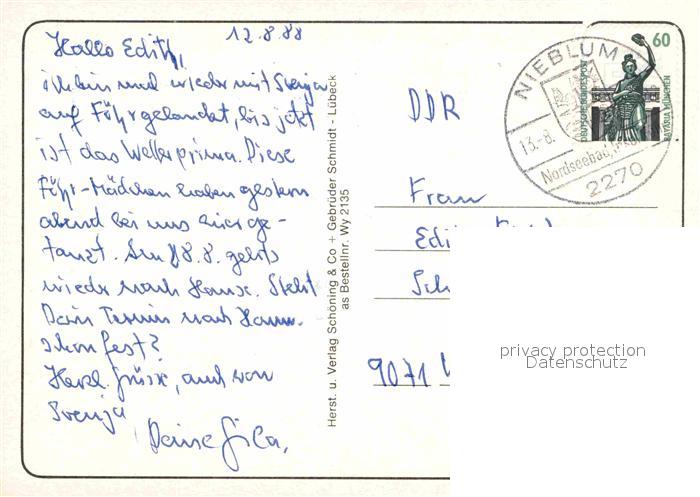 12.8.88
Hallo Edith,
ich bin mal wieder mit Svenja
auf Föhr gelandet, bis jetzt
ist das Wetter prima. Diese
Föhr-Mädchen haben gestern
abend bei uns hier ge-
tanzt. Am 18.8. gehts
wieder nach Hause. Steht
Dein Termin nach Hann.
schon fest?
Herzl. Grüße, auch von
Svenja
Deine Gila,
Herst. u. Verlag Schöning & Co + Gebrüder Schmidt - Lübeck
as Bestellnr. Wy 2135
NIEBLUM
13.-8.
Nordseebad
2270
60
DEUTSCHE BUNDESPOST
BAVARIA MÜNCHEN
DDR
Frau
Edi
Sch
9071
privacy protection
Datenschutz